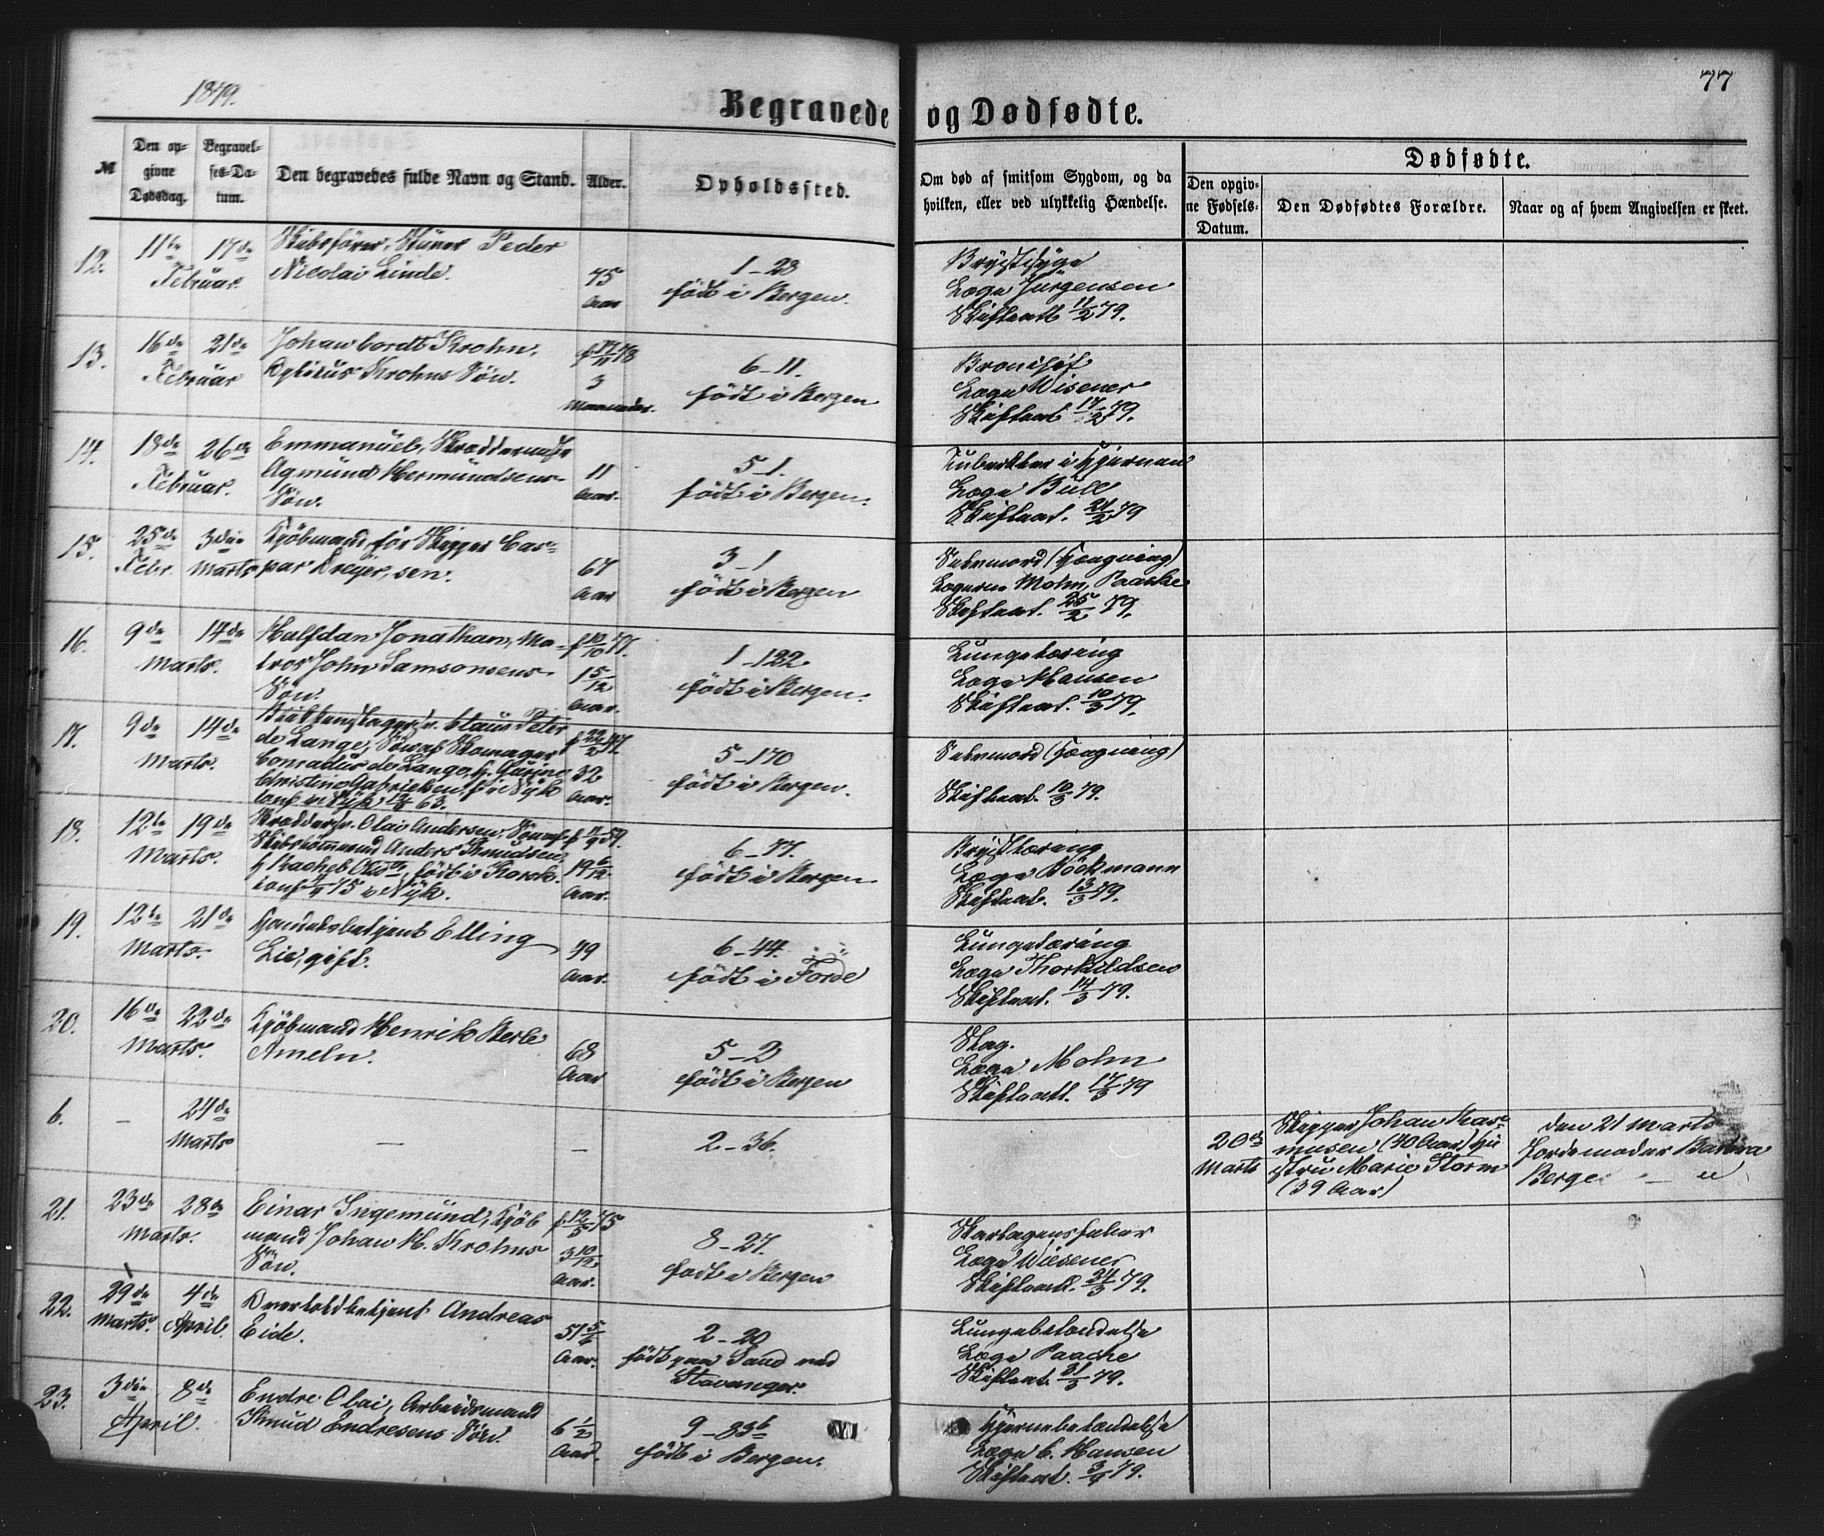 1879.
77
Begravede og Dødfødte.
№
Den opgivne Dødsdag.
Begravelses-Datum.
Den begravedes fulde Navn og Stand.
Alder.
Opholdssted.
Om død af smitsom Sygdom, og da hvilken, eller ved ulykkelig Hændelse.
Dødfødte.
Den opgivne Fødsels-Datum.
Den Dødfødtes Forældre.
Naar og af hvem Angivelsen er skeet.
12. 11te 17de Februar
Skibsfører, Peder
Nicolai Linde.
75 Aar
1-23
født i Bergen.
Brystsyge
Læge Jürgensen
Skiftaatt. 11/2 79.
13. 16de 21de Februar
Johan Cordt Krohn,
Krohns Søn.
3 Maaneder.
6-11.
født i Bergen
Læge Wisener
Skiftaat 17/2 79.
14. 18de 26de Februar.
Emmanuel, Skræddermester
Agmund Hermundsens
Søn.
11 Aar.
5-1.
født i Bergen.
Tuberkler i Hjernen
Læge Bull
Skiftaat. 21/2 79
15. 25de Febr. 3die Marts
Kjøbmand før Skipper Cas-
par Dreyer, sen.
67 Aar
3-1
født i Bergen
Selvmord (Hængning)
Lægerne Mohn, Paaske
Skiftaat. 25/2 79.
16. 9de 14de Marts.
Halfdan Jonathan, Ma-
tros John Samsonsens
Søn.
f. 10/10 77.
1 5/12 Aar.
1-122
født i Bergen.
Lungetæring
Læge Hansen
Skiftaat. 10/3 79.
17. 9de 14de Marts.
Claus Peter
de Lange, Søn af Skomager
Conradus de Lange,
Christine Gabrielsen,
32 Aar.
5-170
født i Bergen.
Selvmord (Hængning)
Skiftaat. 10/3 79.
18. 12te 19de Marts.
Skræddersv. Olai Andersen, Søn af
Skibstømmermand Anders Knudsen,
19 6/12 Aar.
6-77.
født i Bergen
Brysttæring
Læge Böckmann
Skiftaat. 13/3 79.
19. 12te 21de Marts.
Handelsbetjent Elling
Lie, gift.
49 Aar.
6-44.
født i Førde
Lungetæring
Læge Thorkildsen
Skiftaat. 14/3 79.
20. 16de 22de Marts.
Kjøbmand Henrik
Ameln.
68 Aar
5-2
født i Bergen
Slag.
Læge Mohn
Skiftaatt. 17/3 79
6. — 24de Marts
—
—
2-36.
20de Marts
Skipper Johan Ras-
musen (40 Aar) Hu
stru Marie Storm
(39 Aar)
den 21 Marts
Jordemoder
Berge
21. 23de 28de Marts.
Einar Ingemund, Kjøb
mand Johan H. Krohns
Søn.
f. 12/5 75
3 10/12 Aar.
8-27.
født i Bergen
Skarlagensfeber
Læge Wiesener
Skiftaat. 24/3 79.
22. 29de Marts. 4de April.
Overtoldbetjent Andreas
Eide.
51 5/6 Aar.
2-20
født paa Sand ved
Stavanger.
Lungebetændelse
Læge Paaske
Skiftaat 31/3 79.
23. 3die 8de April.
Endre Olai, Arbeidsmand
Knud Endresens Søn.
6 1/2 Aar.
9-83b
født i Bergen.
Hjernebetændelse
Læge C. Hansen
Skiftaat. 3/4 79.